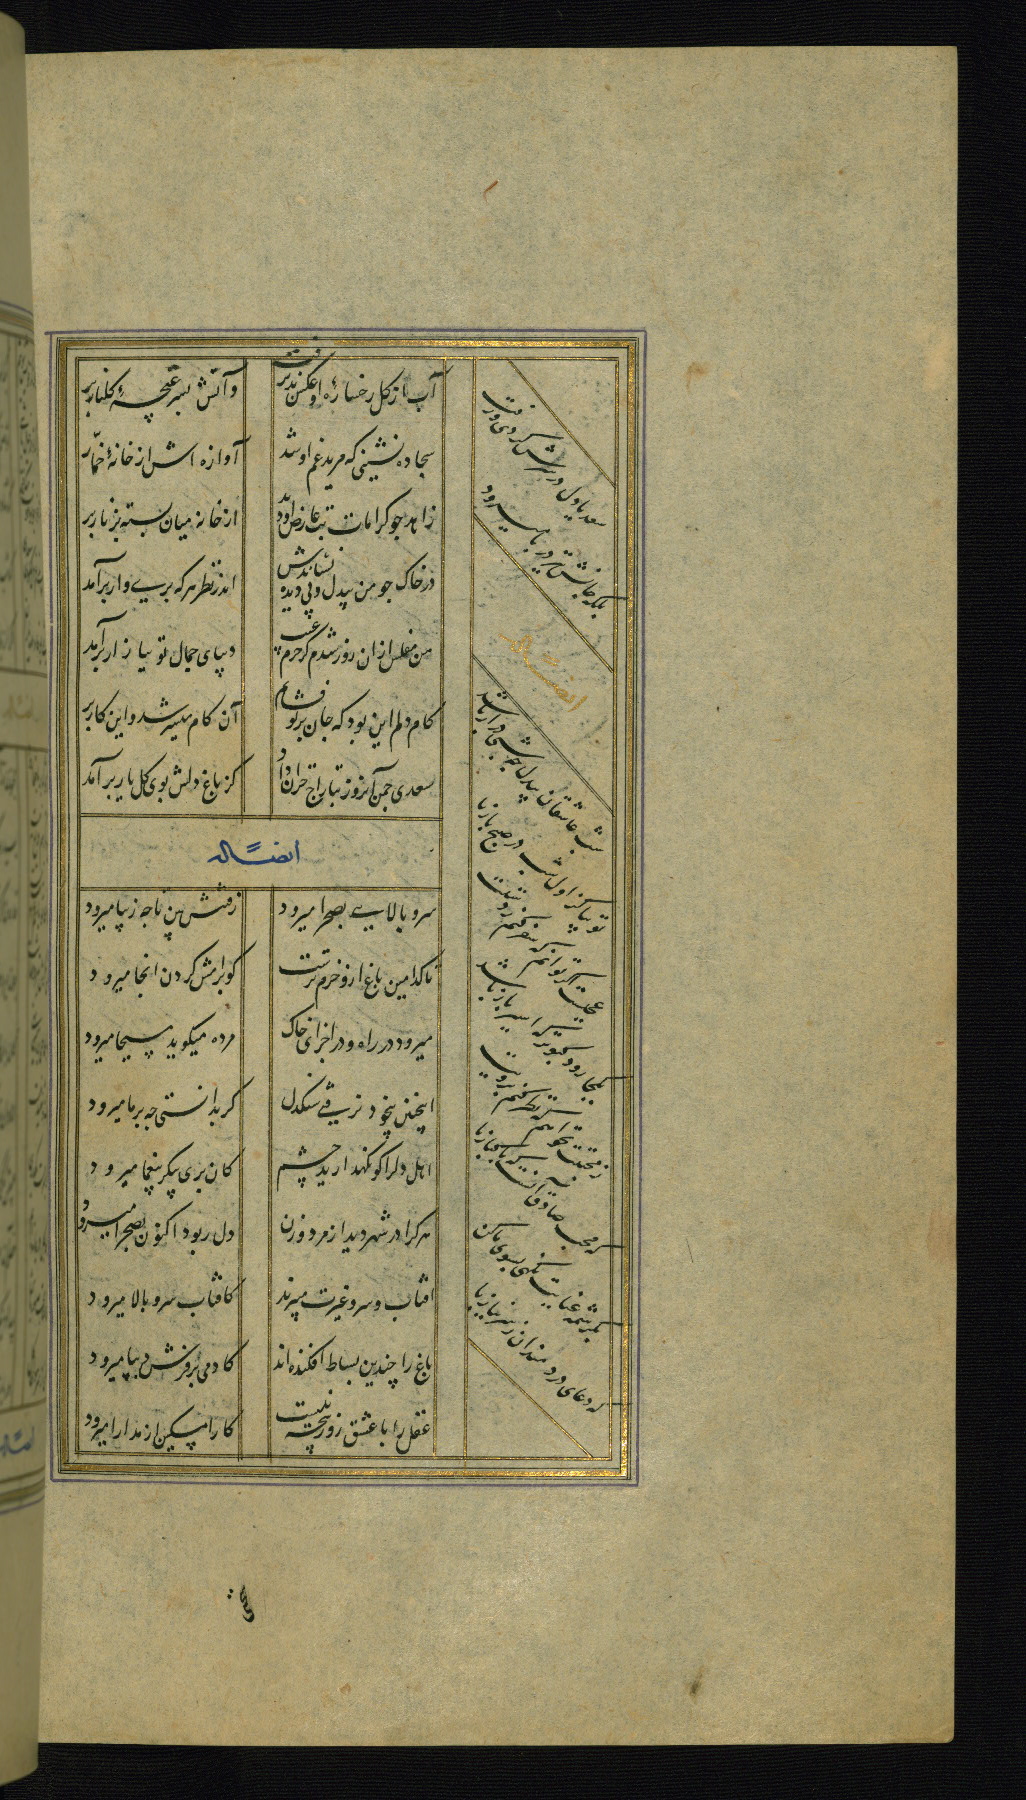 آب از گل رخساره او عکس پذیرفت
وآتش بسر غنچه گلنار بر
سجاده نشینی که مرید غم او شد
آوازه اش از خانه خمّار
زاهد چو کرامات بت عارض او دید
از خانه میان بسته بزنار بر
در خاک چو من بیدل و بی دیده نشاندش
اندر نظر هر که پری وار برآمد
من مفلس ازان روز شدم کز حرم غیب
دیبای جمال تو ببازار برآمد
کام دلم این بود که جان بر تو فشانم
آن کام میسر شد و این کار بر
سعدی چمن آنروز بتاراج خزان داد
کز باغ دلش بوی گل یار برآمد
ایضاً له
سرو بالایی بصحرا میرود
رفتنش بین تا چه زیبا میرود
تا کدامین باغ ازو خرم ترست
کو برامش کردن انجا میرود
میرود در راه و در اجزای خاک
مرده میگوید مسیحا میرود
اینچنین بیخود نرفتی سنکدل
کر بدانستی چه بر ما میرود
اهل دل را کو نگهدارید چشم
کان پری پیکر بیغما میرود
هر کرا در شهر دید از مرد و زن
دل ربود اکنون بصحرا میرود
افتاب و سرو غیرت میبرند
کافتاب سرو بالا میرود
باغ را چندین بساط افکنده اند
کادمی بر فرش دیبا میرود
عقل را با عشق زور پنجه نیست
کار مسکین از مدارا میرود
سعدیا دل در سرش کردی و رفت
بلکه جانش نیز در پا میرود
ایضاً له
شب عاشقان بیدل چه شبی دراز باشد
تو بیا کز اول شب در صبح باز باشد
عجبست اگر توانم که سفر کنم ز دستت
بکجا رود کبوتر که اسیر باز باشد
ز محبتت نخواهم که نظر کنم برویت
که محب صادق آنست که پاکباز باشد
بکرشمه عنایت نگهی بسوی ما کن
که دعای دردمندان ز سر نیاز باشد